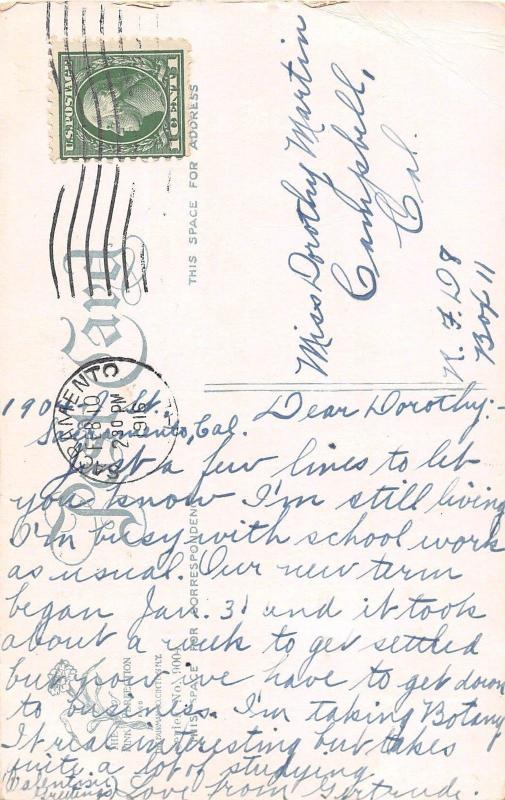 U.S. POSTAGE
1 CENT 1
SACRAMENTO
FEB 10
230 PM
1916
CAL.
Post Card
THIS SPACE FOR ADDRESS
Miss Dorothy Martin
Campbell,
Cal.
R.F.D 8
Box 11
THIS SPACE FOR CORRESPONDENCE
Series No. 900
Sacramento, Cal. Dear Dorothy:-
Just a few lines to let
you know I'm still living
I'm busy with school work
as usual. Our new term
began Jan. 31 and it took
about a week to get settled
but now we have to get down
to business. I'm taking Botany
It real interesting but takes
quite a lot of studying
Love from Gertrude.
(Valentine
Greetings)